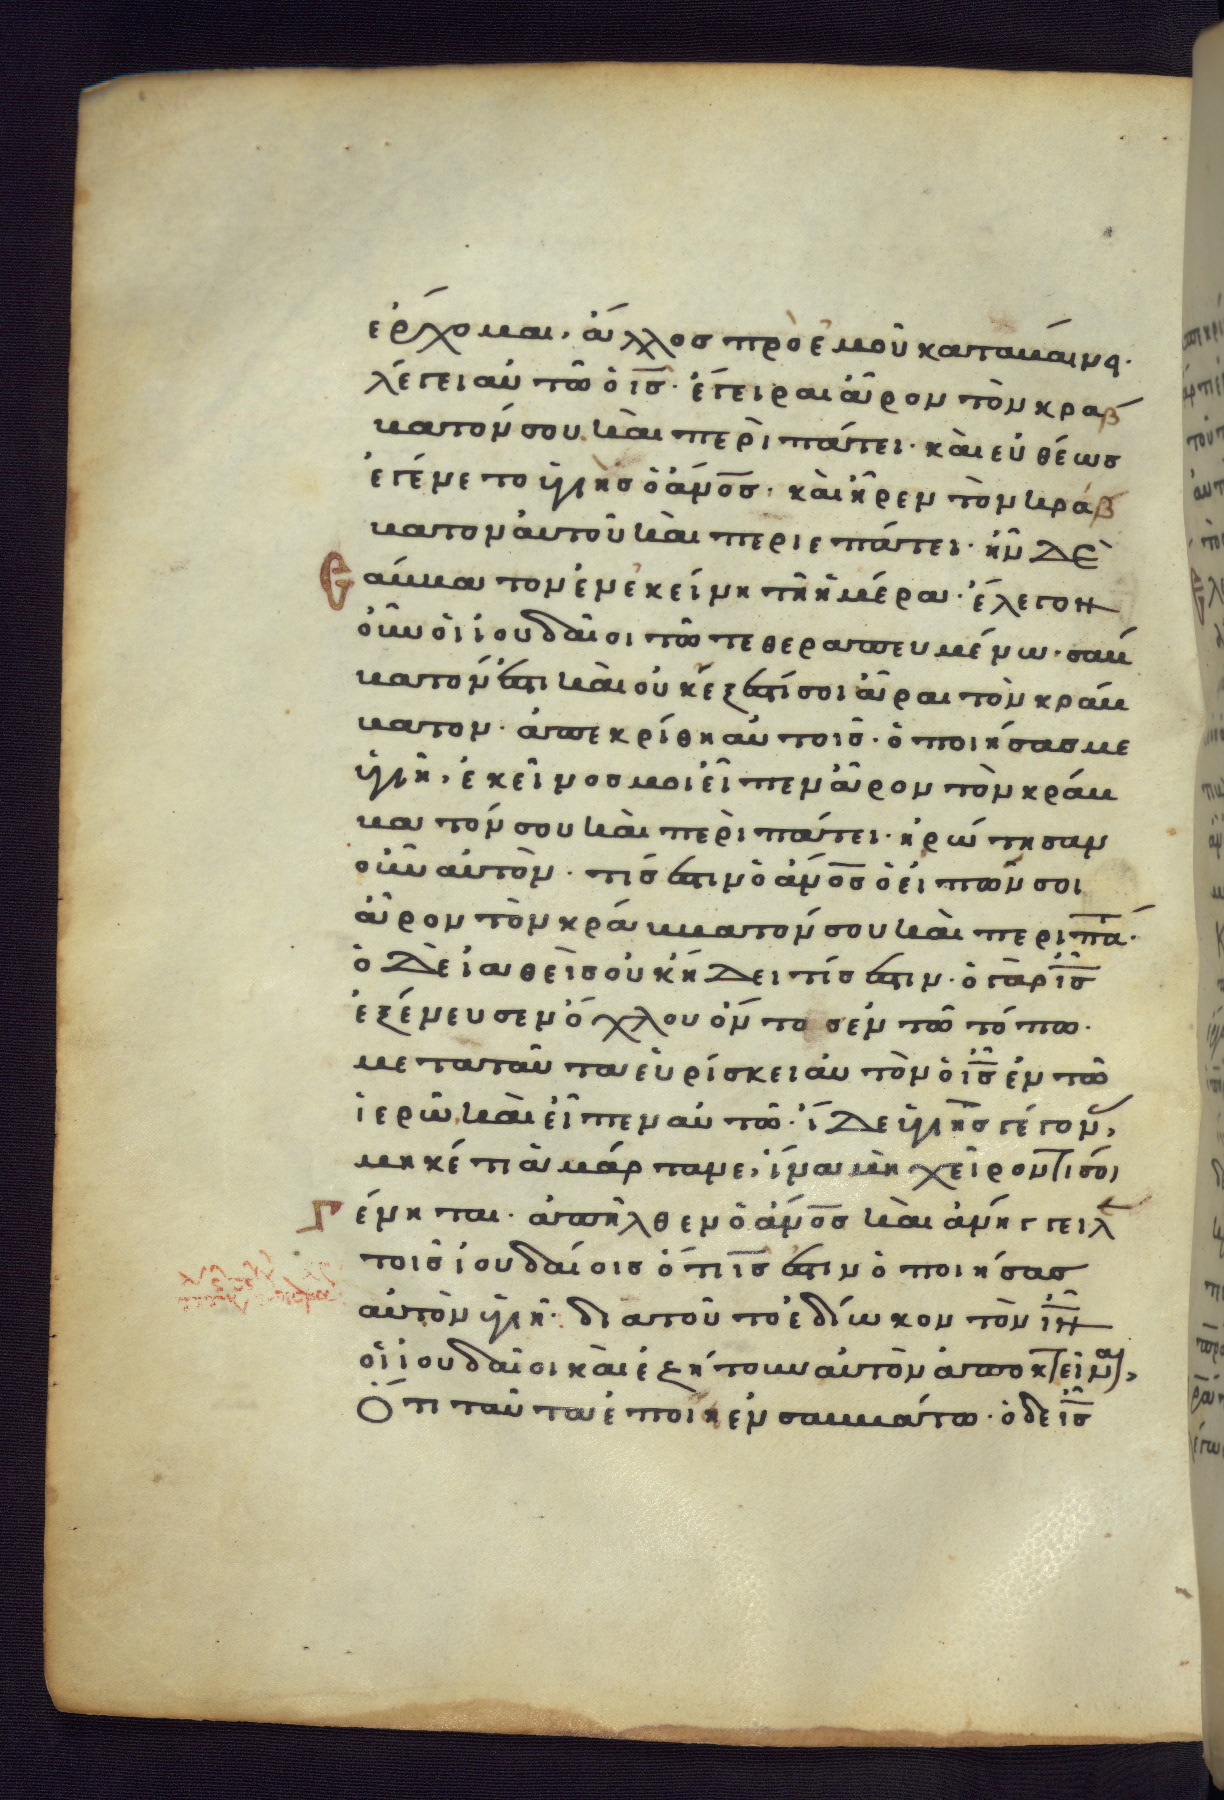 ἔρχομαι· ἄλλος πρὸ ἐμοῦ καταβαίνει·
λέγει αὐτῶ ὁ ις· ἔγειραι ἆρον τὸν κράβ
βατόν σου καὶ περιπάτει· καὶ εὐθέως
ἐγένετο ὑγιὴς ὁ ἄνος· καὶ ἦρεν τὸν κράβ
βατον αὐτοῦ καὶ περιεπάτει· ἦν δὲ
σάββατον ἐν ἐκείνη τῆ ἡμέρα· ἔλεγον
οὖν οἱ ἰουδαῖοι τῶ τεθεραπευμένω· σάβ
βατόν ἐστι καὶ οὐκ ἔξεστί σοι ἆραι τὸν κράβ
βατον· ἀπεκρίθη αὐτοῖς· ὁ ποιήσας με
ὑγιῆ, ἐκεῖνος μοι εἶπεν ἆρον τὸν κράβ
βατόν σου καὶ περιπάτει· ἠρώτησαν
οὖν αὐτὸν· τίς ἐστιν ὁ ἄνος ὁ εἰπών σοι
ἆρον τὸν κράββατόν σου καὶ περιπά·
ὁ δὲ ἰαθεὶς οὐκ ἤδει τίς ἐστιν· ὁ γὰρ ις
ἐξένευσεν ὄχλου ὄντος ἐν τῶ τόπω·
μετὰ ταῦτα εὑρίσκει αὐτὸν ὁ ις ἐν τῶ
ἱερῶ καὶ εἶπεν αὐτῶ· ἴδε ὑγιὴς γέγον,
μηκέτι ἁμάρτανε, ἵνα μὴ χεῖρον τι σοι
γένηται· ἀπῆλθεν ὁ ἄνος καὶ ἀνήγγειλε
τοῖς ἰουδαίοις ὅτι ις ἐστιν ὁ ποιήσας
αὐτὸν ὑγιῆ· διὰ τοῦτο ἐδίωκον τὸν ιν
οἱ ἰουδαῖοι καὶ ἐζήτουν αὐτὸν ἀποκτεῖναι,
Ὅτι ταῦτα ἐποίει ἐν σαββάτω· ὁ δε ις